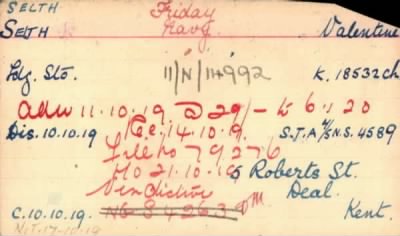 SELTH Friday
SELTH Navy Valentine
Ldg. Sto. 11/N/114992 K. 18532 Ch
Adm 11.10.19 @ 29/- to 6.1.20
Dis. 10.10.19 Rec. 14.10.19. S.J.A. N.S. 4589
File No 79276
HO 21.10.19 6 Roberts St.
Vindictive Deal.
C. 10.10.19. NG 84263 DM Kent.
NIT-17-10-19